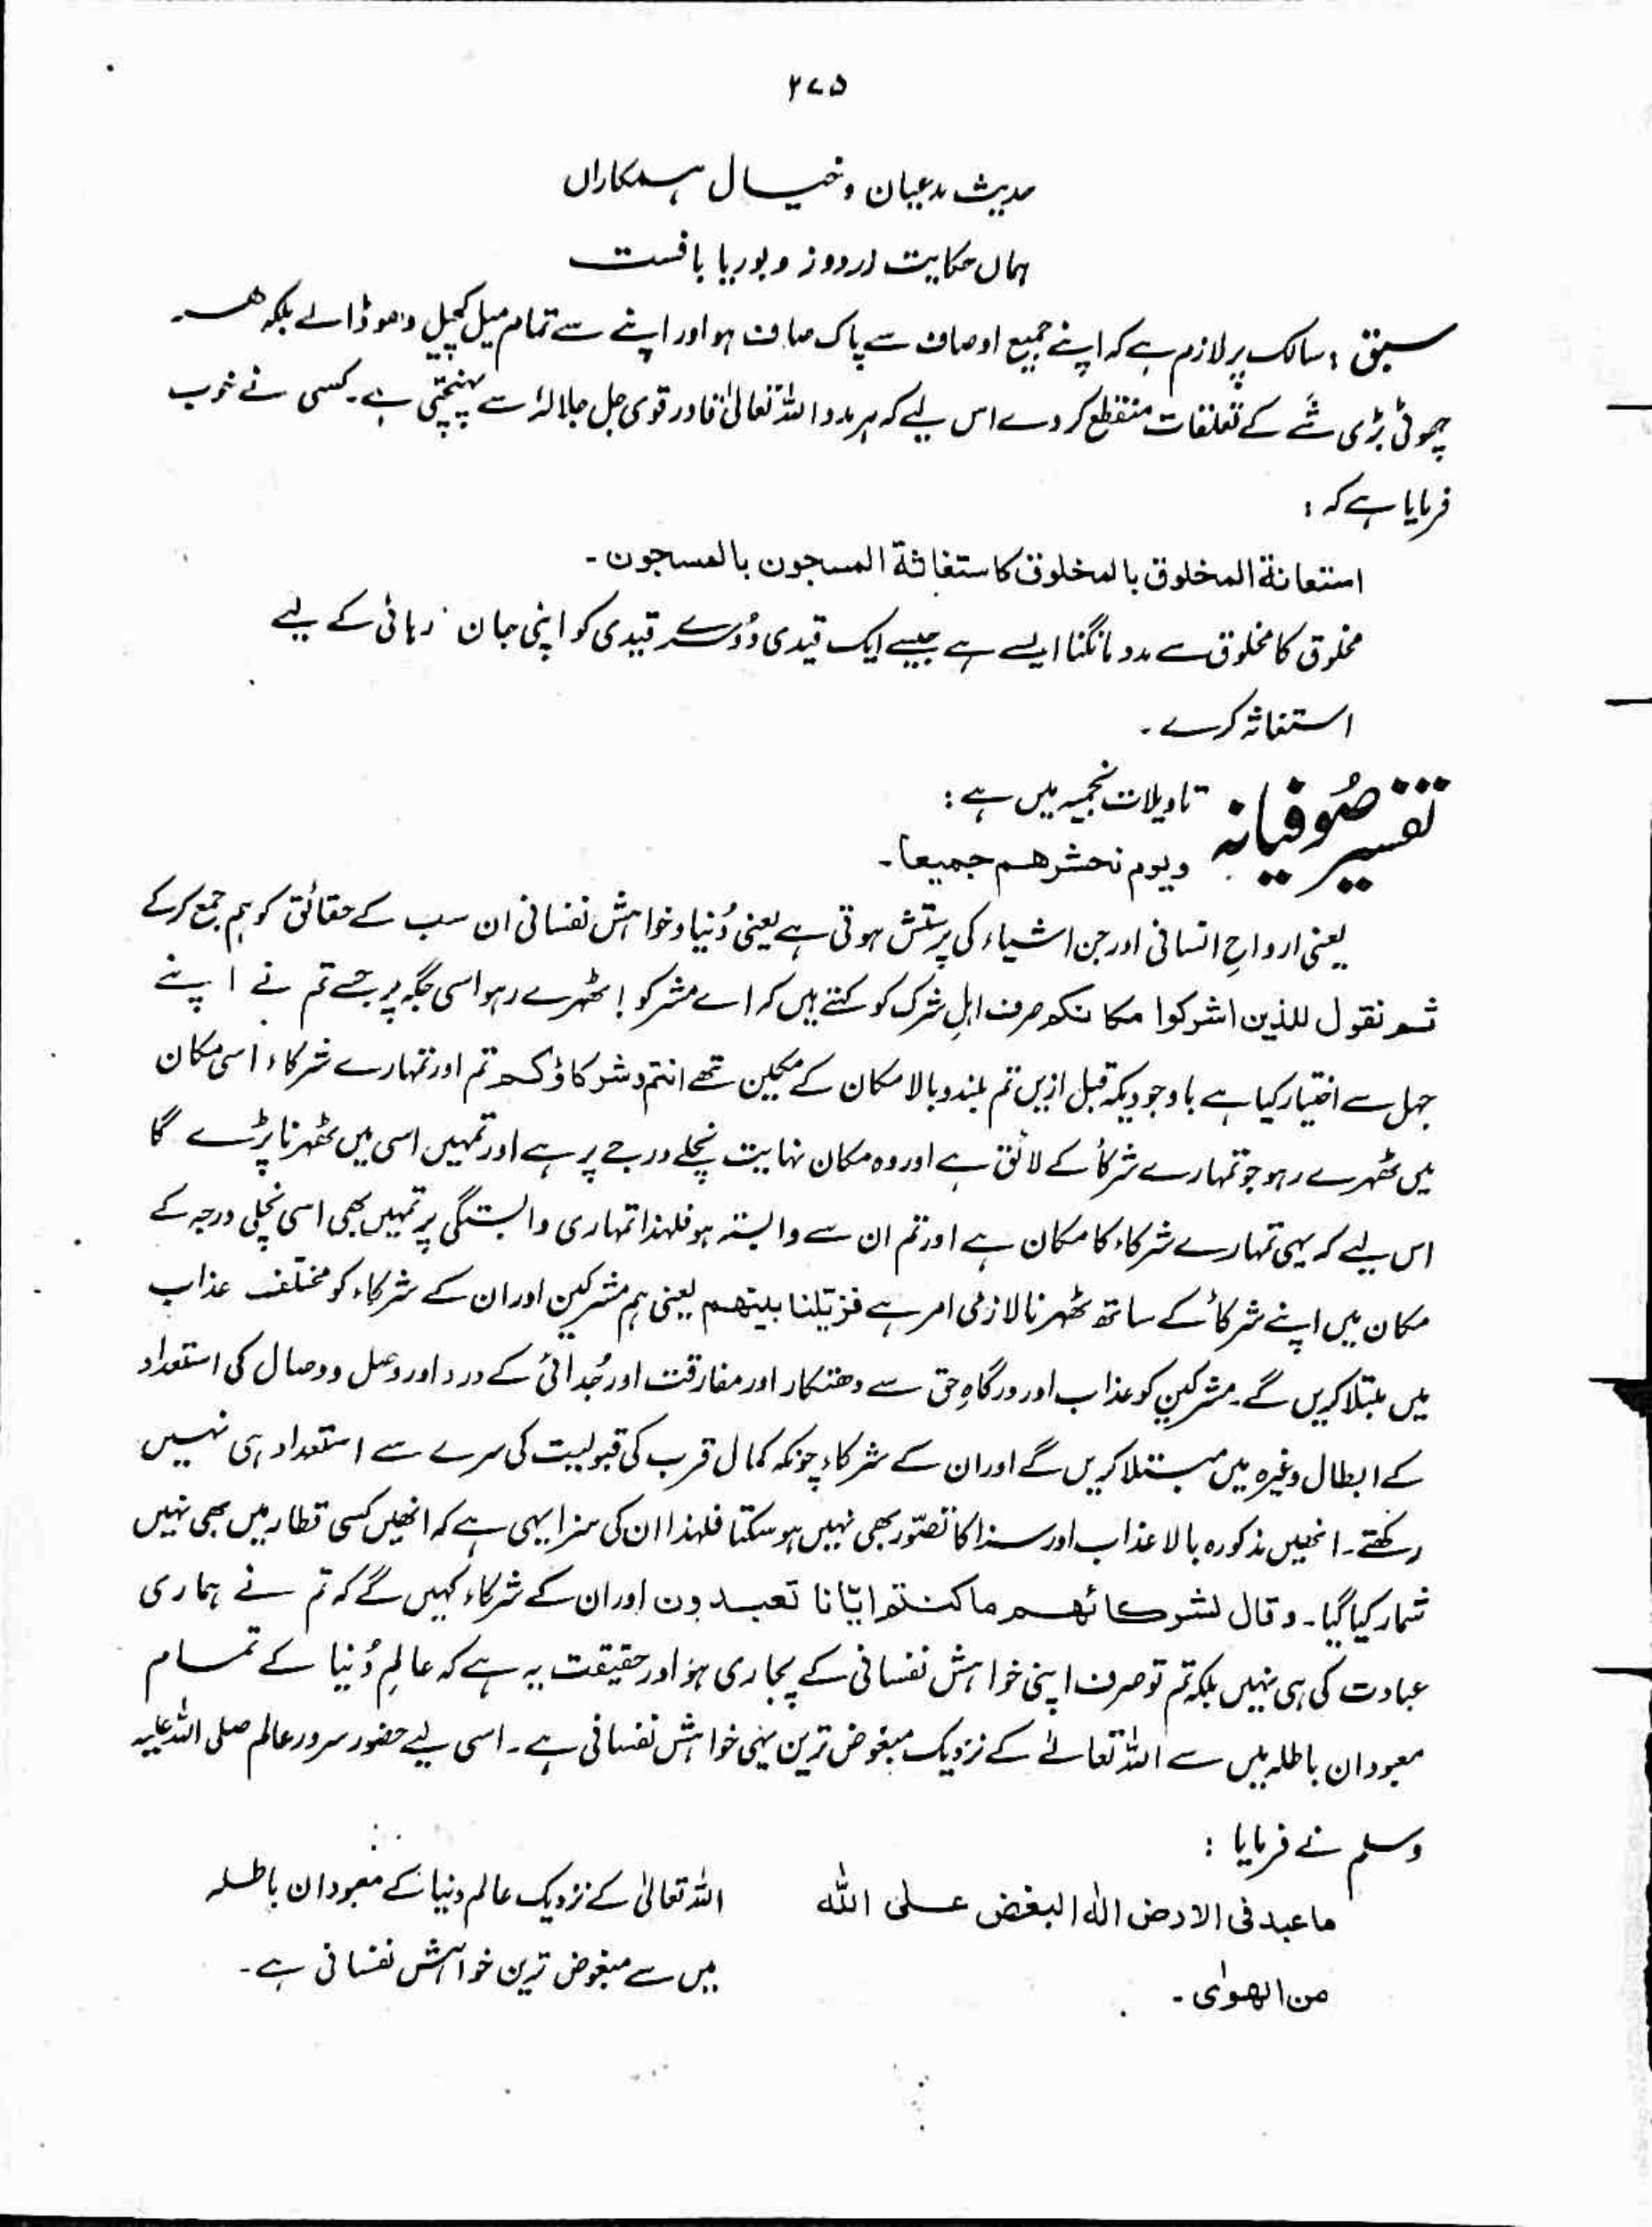 ۲۷۵
حدیث مدعیان و خیال ہمکاراں
ہماں حکایت زردوز و بوریا بافست
سبق : سالک پر لازم ہے کہ اپنے جمیع اوصاف سے پاک صاف ہو اور اپنے سے تمام میل کچیل دھو ڈالے بلکہ ہر
چھوٹی بڑی شے کے تعلقات منقطع کر دے اس لیے کہ ہر مدد اللہ تعالیٰ قادر قوی جل جلالہٗ سے پہنچتی ہے۔ کسی نے خوب
فرمایا ہے کہ :
استعانة المخلوق بالمخلوق كاستغاثة المسجون بالمسجون۔
مخلوق کا مخلوق سے مدد مانگنا ایسے ہے جیسے ایک قیدی دُوسرے قیدی کو اپنی جان رہائی کے لیے
استغاثہ کرے۔
تفسیر صُوفیانہ تاویلات نجمیہ میں ہے :
ویوم نحشرھم جمیعا۔
یعنی ارواحِ انسانی اور جن اشیاء کی پرستش ہوتی ہے یعنی دُنیا و خواہش نفسانی ان سب کے حقائق کو ہم جمع کرکے
ثم نقول للذین اشرکوا مکانکم صرف اہلِ شرک کو کہتے ہیں کہ اے مشرکو! ٹھہرے رہو اسی جگہ پر جسے تم نے اپنے
جہل سے اختیار کیا ہے باوجودیکہ قبل ازیں تم بلند و بالا مکان کے مکین تھے انتم و شرکاؤکم تم اور تمہارے شرکاء اسی مکان
میں ٹھہرے رہو جو تمہارے شرکاٗ کے لائق ہے اور وہ مکان نہایت نچلے درجے پر ہے اور تمہیں اسی میں ٹھہرنا پڑے گا
اس لیے کہ یہی تمہارے شرکاء کا مکان ہے اور تم ان سے وابستہ ہو فلہٰذا تمہاری وابستگی پر تمہیں بھی اسی نچلی درجہ کے
مکان میں اپنے شرکاٗ کے ساتھ ٹھہرنا لازمی امر ہے فزیّلنا بینھم یعنی ہم مشرکین اور ان کے شرکاء کو مختلف عذاب
میں مبتلا کریں گے۔ مشرکین کو عذاب اور درگاہِ حق سے دھتکار اور مفارقت اور جُدائی کے درد اور وصل و وصال کی استعداد
کے ابطال وغیرہ میں مبتلا کریں گے اور ان کے شرکاء چونکہ کمال قرب کی قبولیت کی سرے سے استعداد ہی نہیں
رکھتے۔ انھیں مذکورہ بالا عذاب اور سزا کا تصوّر بھی نہیں ہو سکتا فلہٰذا ان کی سزا یہی ہے کہ انھیں کسی قطار میں بھی نہیں
شمار کیا گیا۔ و قال شرکائھم ما کنتم ایّانا تعبدون اور ان کے شرکاء کہیں گے کہ تم نے ہماری
عبادت کی ہی نہیں بلکہ تم تو صرف اپنی خواہش نفسانی کے پجاری ہو اور حقیقت یہ ہے کہ عالمِ دُنیا کے تمام
معبودان باطلہ میں سے اللہ تعالےٰ کے نزدیک مبغوض ترین یہی خواہش نفسانی ہے۔ اسی لیے حضور سرور عالم صلی اللہ علیہ
وسلم نے فرمایا :
ما عبد فی الارض الٰہ البغض علی اللہ
من الھوٰی۔
اللہ تعالیٰ کے نزدیک عالم دنیا کے معبودان باطلہ
میں سے مبغوض ترین خواہش نفسانی ہے۔